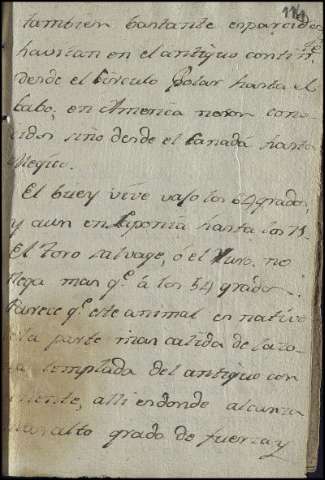 tambien bastante esparcidos
havitan en el antiguo contin.te
desde el Circulo Polar hasta el
Cabo, en America no son cono
cidos sino desde el Canadá hasta
Megico.
El buey vive vajo los 64 grados,
y aun en Liponia hasta los 71
El Toro salvage, ó el Yuro, no
llega mas q.e á los 54 grados.
Parece q.e este animal es nativo
la parte mas calida de la zo
templada del antiguo con
nente, alli en donde alcanza
mas alto grado de fuerza y